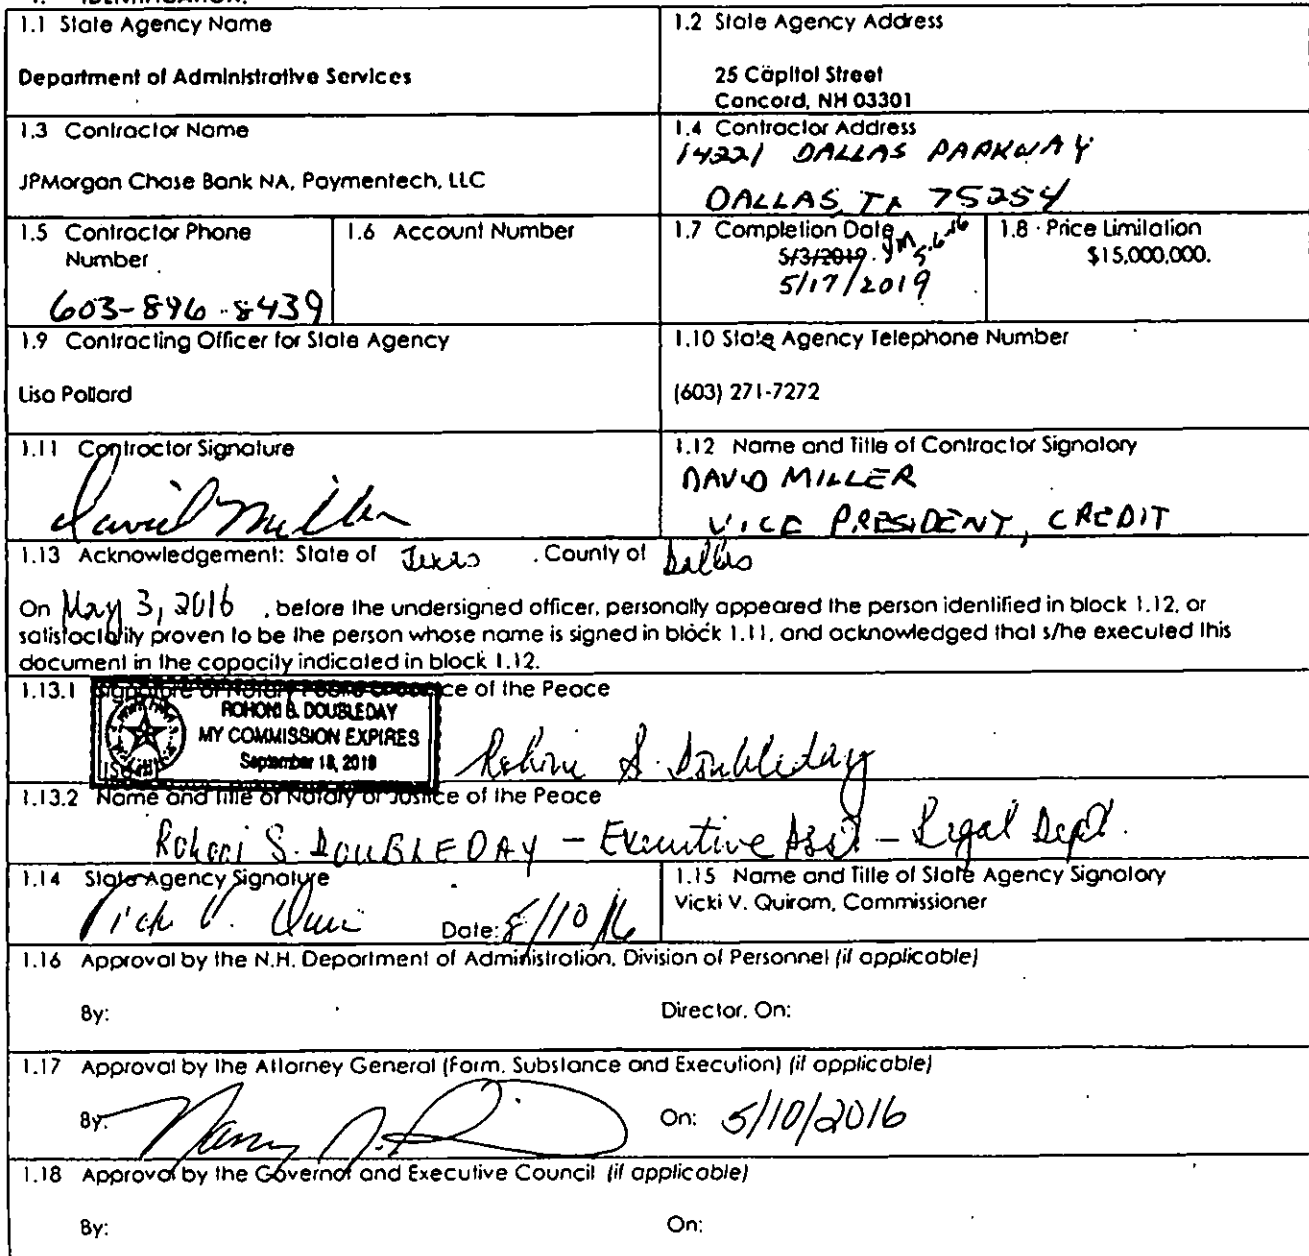 1. IDENTIFICATION.
1.1 State Agency Name
Department of Administrative Services
1.2 State Agency Address
25 Capitol Street
Concord, NH 03301
1.3 Contractor Name
JPMorgan Chase Bank NA, Paymentech, LLC
1.4 Contractor Address
14221 DALLAS PARKWAY
DALLAS, TX 75254
1.5 Contractor Phone
Number
603-896-8439
1.6 Account Number
1.7 Completion Date
5/3/2019
5/17/2019
1.8 Price Limitation
$15,000,000.
1.9 Contracting Officer for State Agency
Lisa Pollard
1.10 State Agency Telephone Number
(603) 271-7272
1.11 Contractor Signature
David Miller
1.12 Name and Title of Contractor Signatory
DAVID MILLER
VICE PRESIDENT, CREDIT
1.13 Acknowledgement: State of Texas , County of Dallas
On May 3, 2016 , before the undersigned officer, personally appeared the person identified in block 1.12, or
satisfactorily proven to be the person whose name is signed in block 1.11, and acknowledged that s/he executed this
document in the capacity indicated in block 1.12.
1.13.1 Signature of Notary Public or Justice of the Peace
DOUBLEDAY
MY COMMISSION EXPIRES
September 18,
S. Doubleday
1.13.2 Name and Title of Notary or Justice of the Peace
S. DOUBLEDAY – Executive Asst – Legal Dept.
1.14 State Agency Signature
Date:
1.15 Name and Title of State Agency Signatory
Vicki V. Quiram, Commissioner
1.16 Approval by the N.H. Department of Administration, Division of Personnel (if applicable)
By:
Director, On:
1.17 Approval by the Attorney General (Form, Substance and Execution) (if applicable)
By:
On: 5/10/2016
1.18 Approval by the Governor and Executive Council (if applicable)
By:
On: